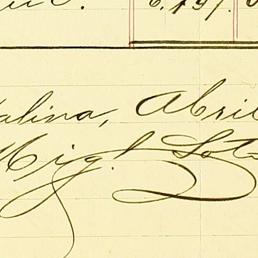 6,791.
alina, Abril
Migl. Soto